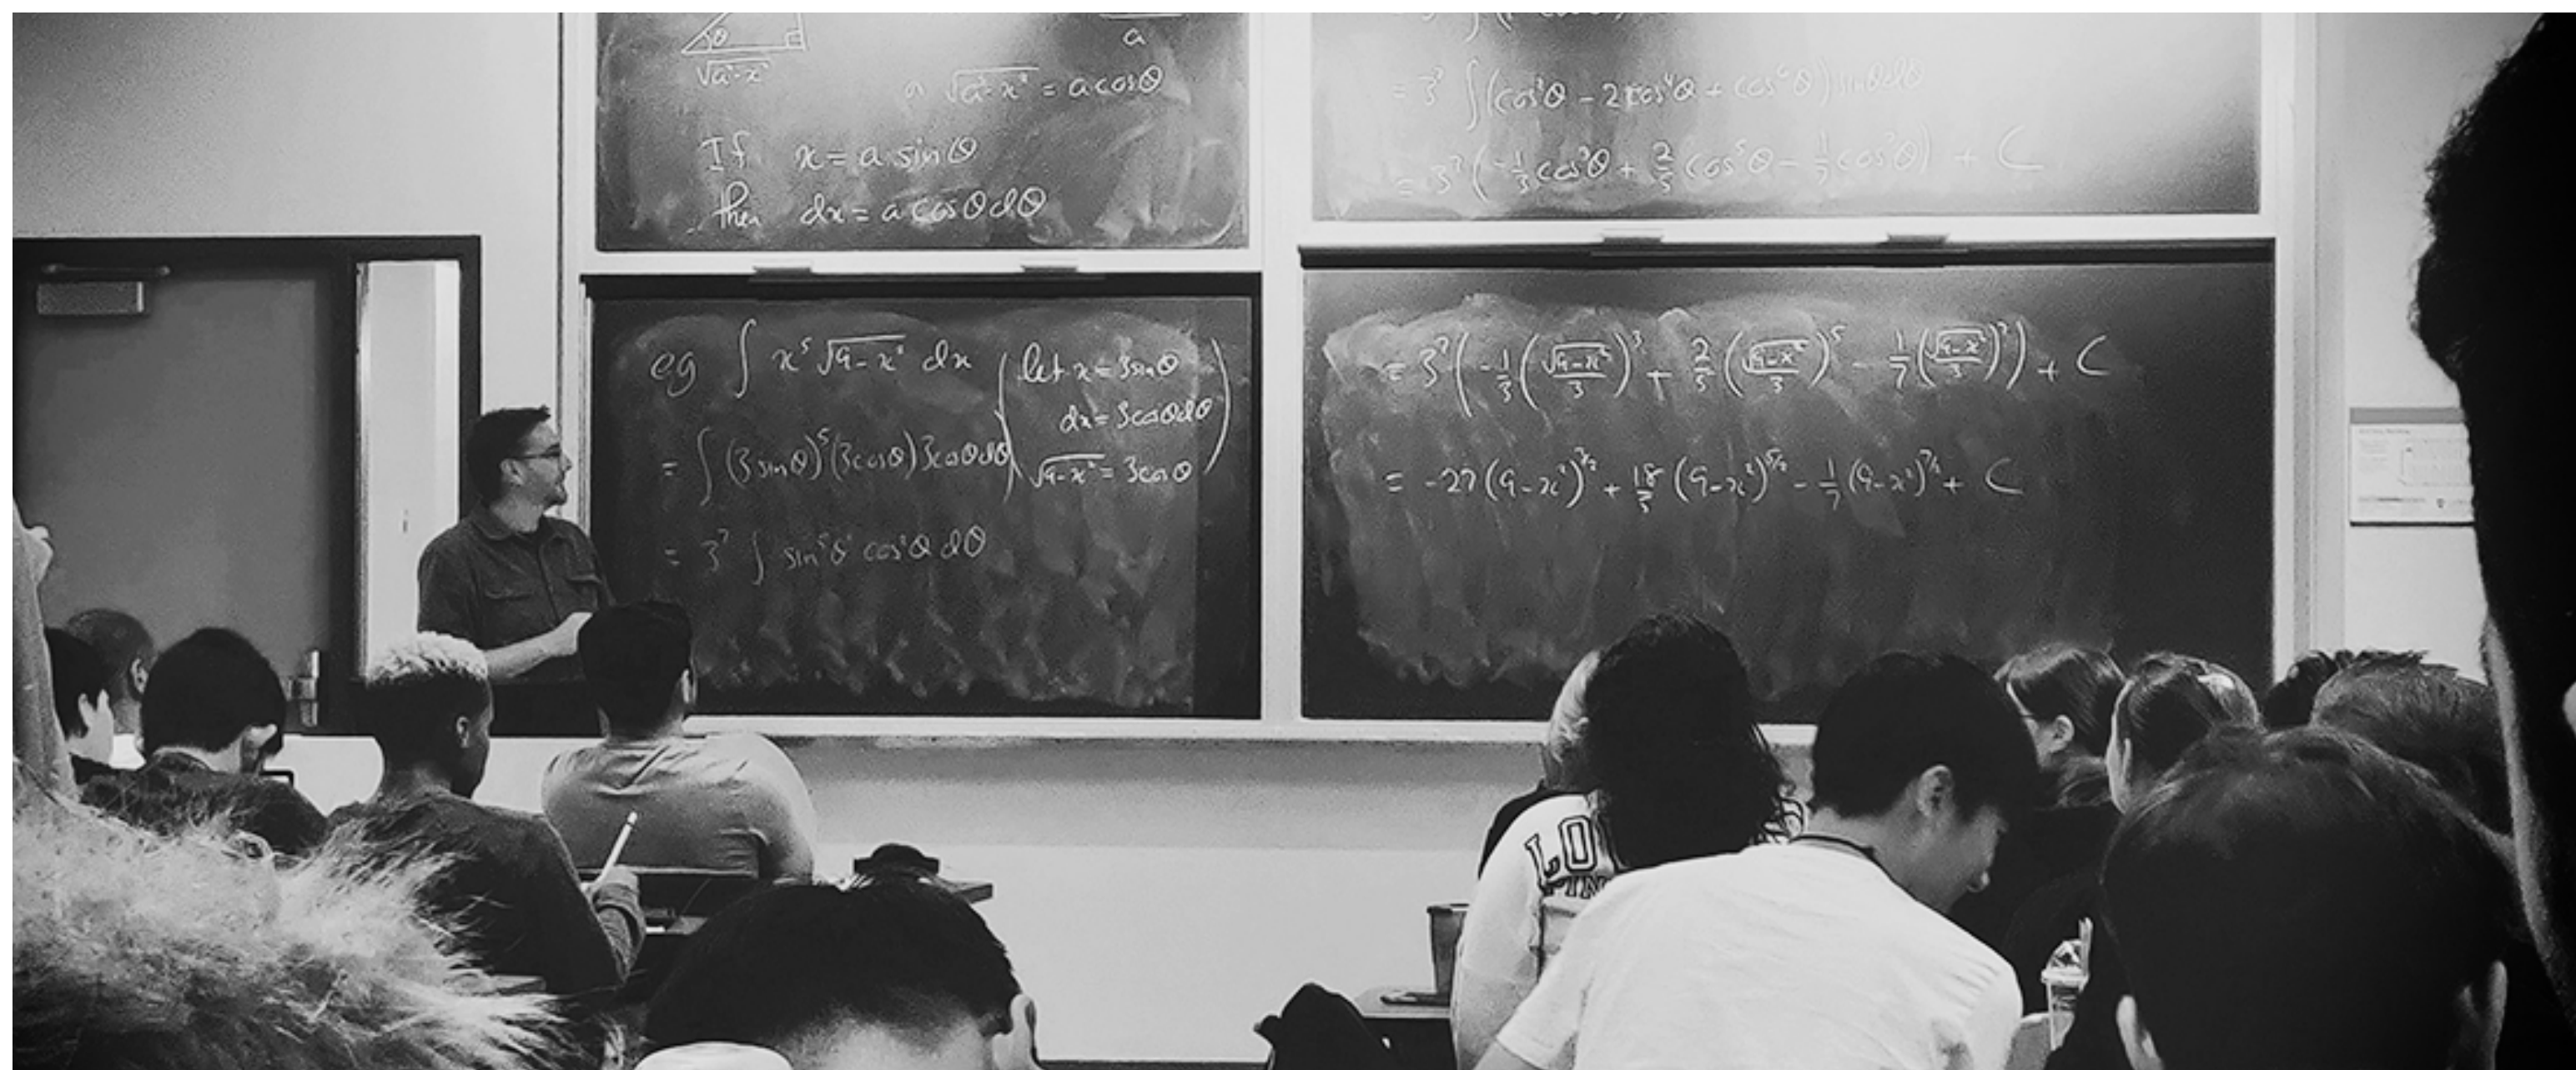 θ
√a²-x²
a
√a²-x² = a cosθ
If x = a sinθ
then dx = a cosθ dθ
eg ∫ x⁵ √9-x² dx (let x = 3sinθ
dx = 3cosθdθ
= ∫ (3 sinθ)⁵ (3cosθ) 3cosθdθ
√9-x² = 3cosθ)
= 3⁷ ∫ sin⁵θ cos²θ dθ
= 3⁷ ∫ (cos²θ - 2cos⁴θ + cos⁶θ) sinθdθ
= 3⁷ (-1/3 cos³θ + 2/5 cos⁵θ - 1/7 cos⁷θ) + C
= 3⁷ (-1/3 (√9-x²/3)³ + 2/5 (√9-x²/3)⁵ - 1/7 (√9-x²/3)⁷) + C
= -27 (9-x²)^3/2 + 18/5 (9-x²)^5/2 - 1/7 (9-x²)^7/2 + C
LO